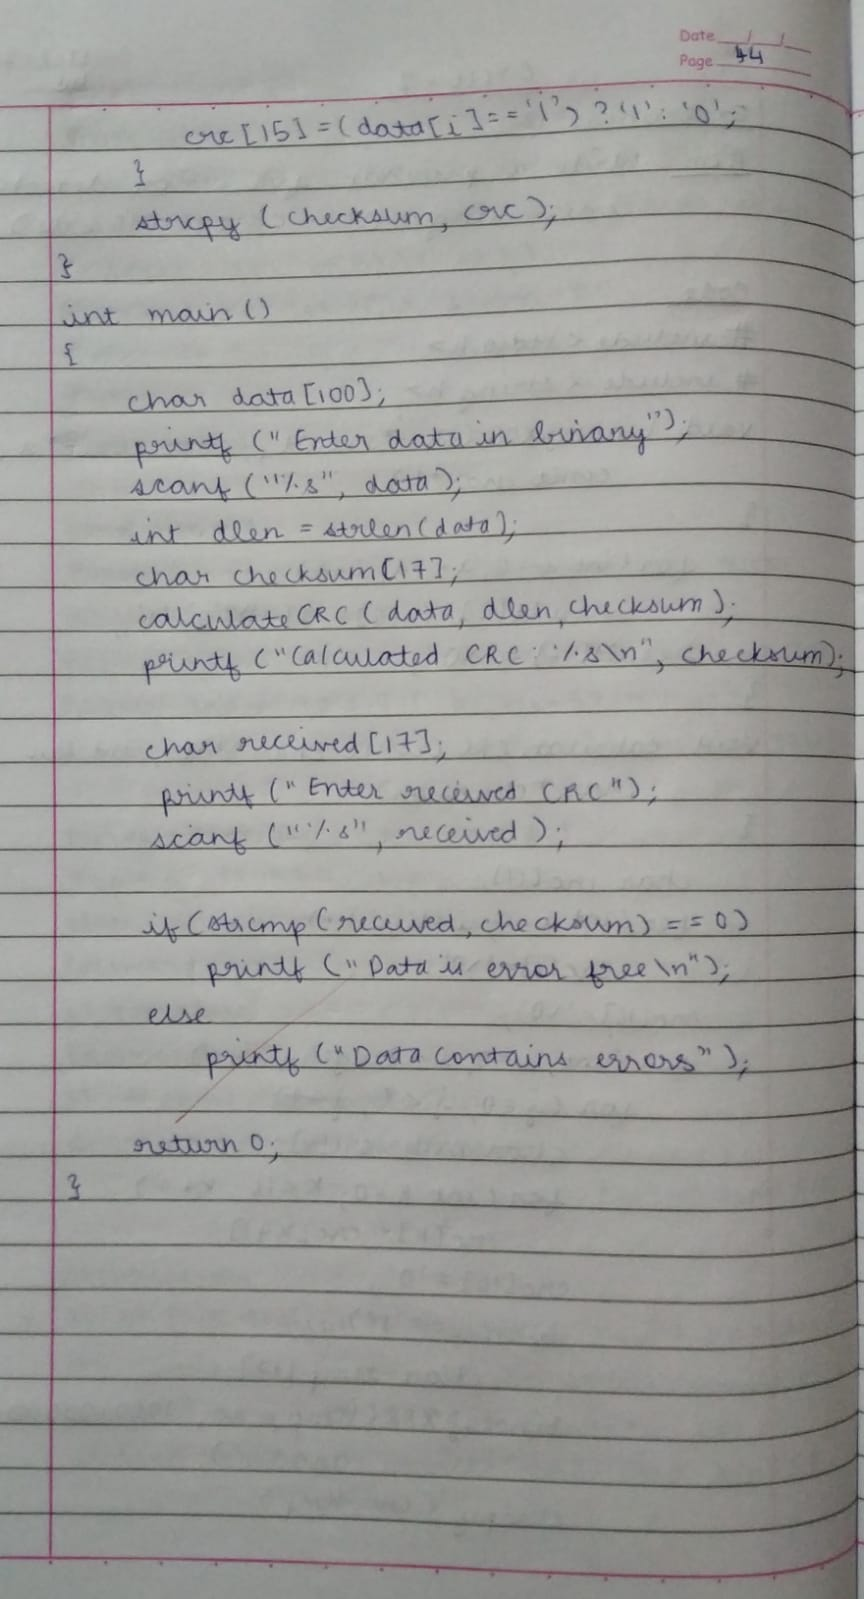 Date
Page 44
crc[15] = (data[i] == '1') ? '1' : '0';
}
strcpy (checksum, crc);
}
int main ()
{
char data [100];
printf ("Enter data in binary");
scanf ("%s", data);
int dlen = strlen(data);
char checksum[17];
calculateCRC (data, dlen, checksum);
printf ("Calculated CRC: %s\n", checksum);
char received [17];
printf ("Enter received CRC");
scanf ("%s", received);
if (strcmp (received, checksum) == 0)
printf ("Data is error free \n");
else
printf ("Data contains errors");
return 0;
}